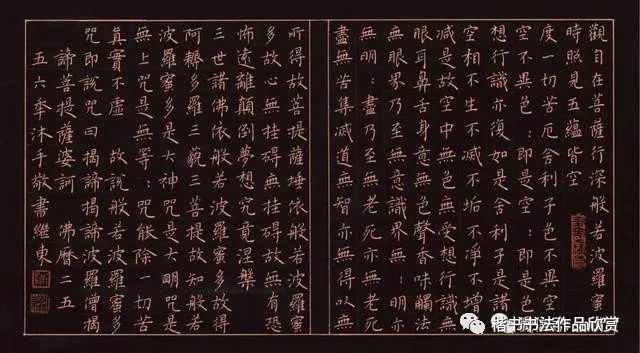 觀自在菩薩行深般若波羅蜜
時照見五蘊皆空
度一切苦厄舍利子色不異空
空不異色:即是空:即是色
想行識亦復如是舍利子是諸
空相不生不滅不垢不淨不增
減是故空中無色無受想行識
眼耳鼻舌身意無色聲香味觸法
無眼界乃至無意識界無:明亦
無明:盡乃至無老死亦無老死
盡無苦集滅道無智亦無得以無
所得故菩提薩埵依般若波羅蜜
多故心無挂礙無挂礙故無有恐
怖遠離顛倒夢想究竟涅槃
三世諸佛依般若波羅蜜多故得
阿耨多羅三藐三菩提故知般若
波羅蜜多是大神咒是大明咒是
無上咒是無等:咒能除一切苦
真實不虛 故說般若波羅蜜多
咒即說咒曰揭諦揭諦波羅僧揭
諦菩提薩婆訶 佛曆二五
五六秊沐手敬書繼東
楷书书法作品欣赏